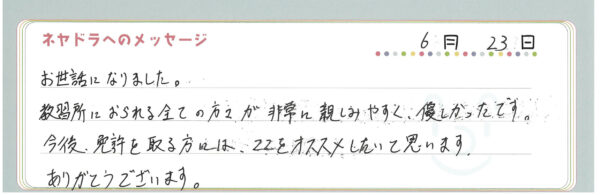 ネヤドラへのメッセージ
6月 23日
お世話になりました。
教習所におられる全ての方々が非常に親しみやすく、優しかったです。
今後、免許を取る方には、ココをオススメしたいて思います。
ありがとうございます。